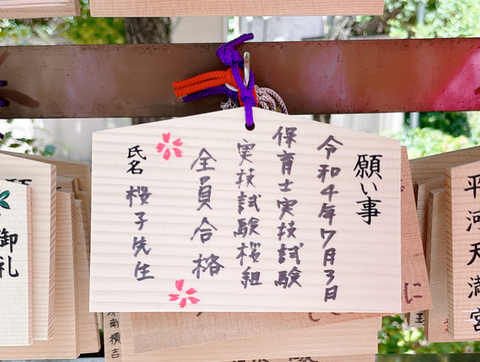 願い事
令和4年7月3日
保育士実技試験
実技試験桜組
全員合格
氏名 桜子先生
平河天満宮
御札